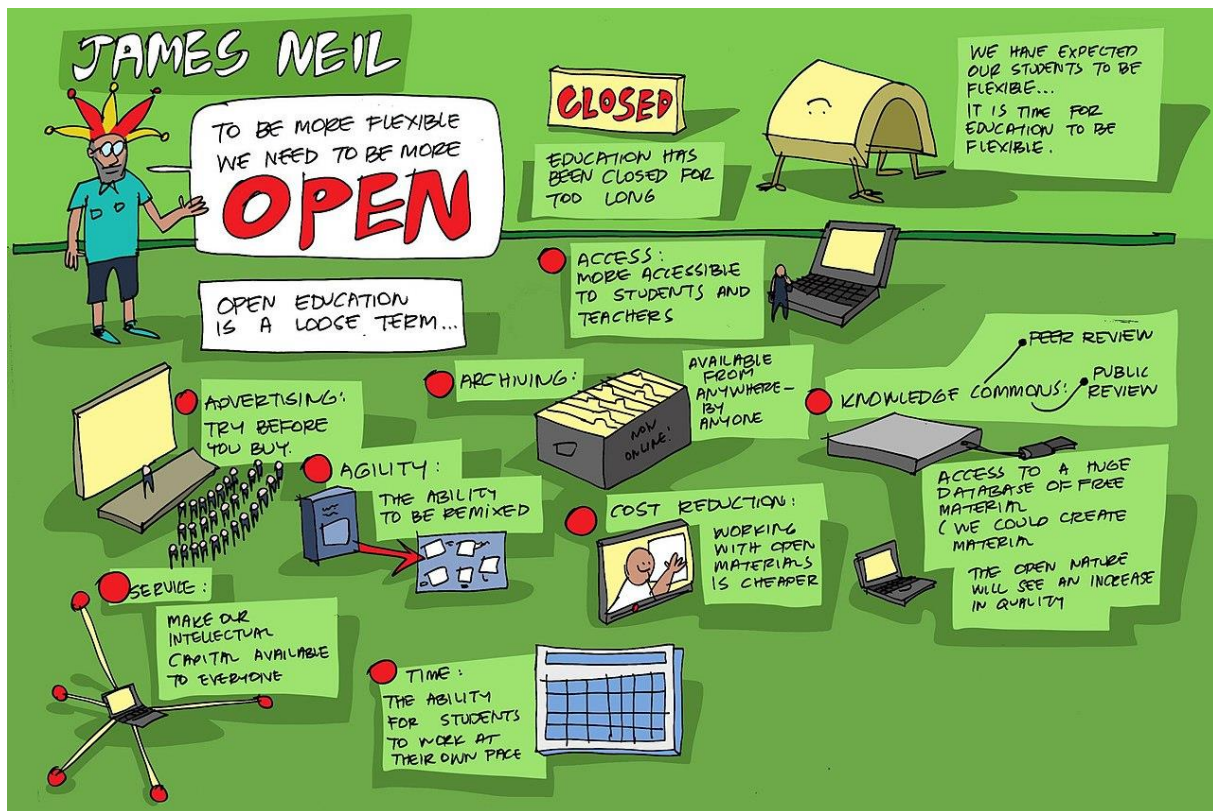 JAMES NEIL
TO BE MORE FLEXIBLE
WE NEED TO BE MORE
OPEN
CLOSED
EDUCATION HAS
BEEN CLOSED FOR
TOO LONG
WE HAVE EXPECTED
OUR STUDENTS TO BE
FLEXIBLE...
IT IS TIME FOR
EDUCATION TO BE
FLEXIBLE.
OPEN EDUCATION
IS A LOOSE TERM...
ACCESS:
MORE ACCESSIBLE
TO STUDENTS AND
TEACHERS
ADVERTISING:
TRY BEFORE
YOU BUY.
ARCHIVING:
AVAILABLE
FROM
ANYWHERE-
BY
ANYONE
NOW
ONLINE!
KNOWLEDGE COMMONS:
PEER REVIEW
PUBLIC
REVIEW
ACCESS TO A HUGE
DATABASE OF FREE
MATERIAL
(WE COULD CREATE
MATERIAL
THE OPEN NATURE
WILL SEE AN INCREASE
IN QUALITY
AGILITY:
THE ABILITY
TO BE REMIXED
COST REDUCTION:
WORKING
WITH OPEN
MATERIALS
IS CHEAPER
SERVICE:
MAKE OUR
INTELLECTUAL
CAPITAL AVAILABLE
TO EVERYONE
TIME:
THE ABILITY
FOR STUDENTS
TO WORK AT
THEIR OWN PACE